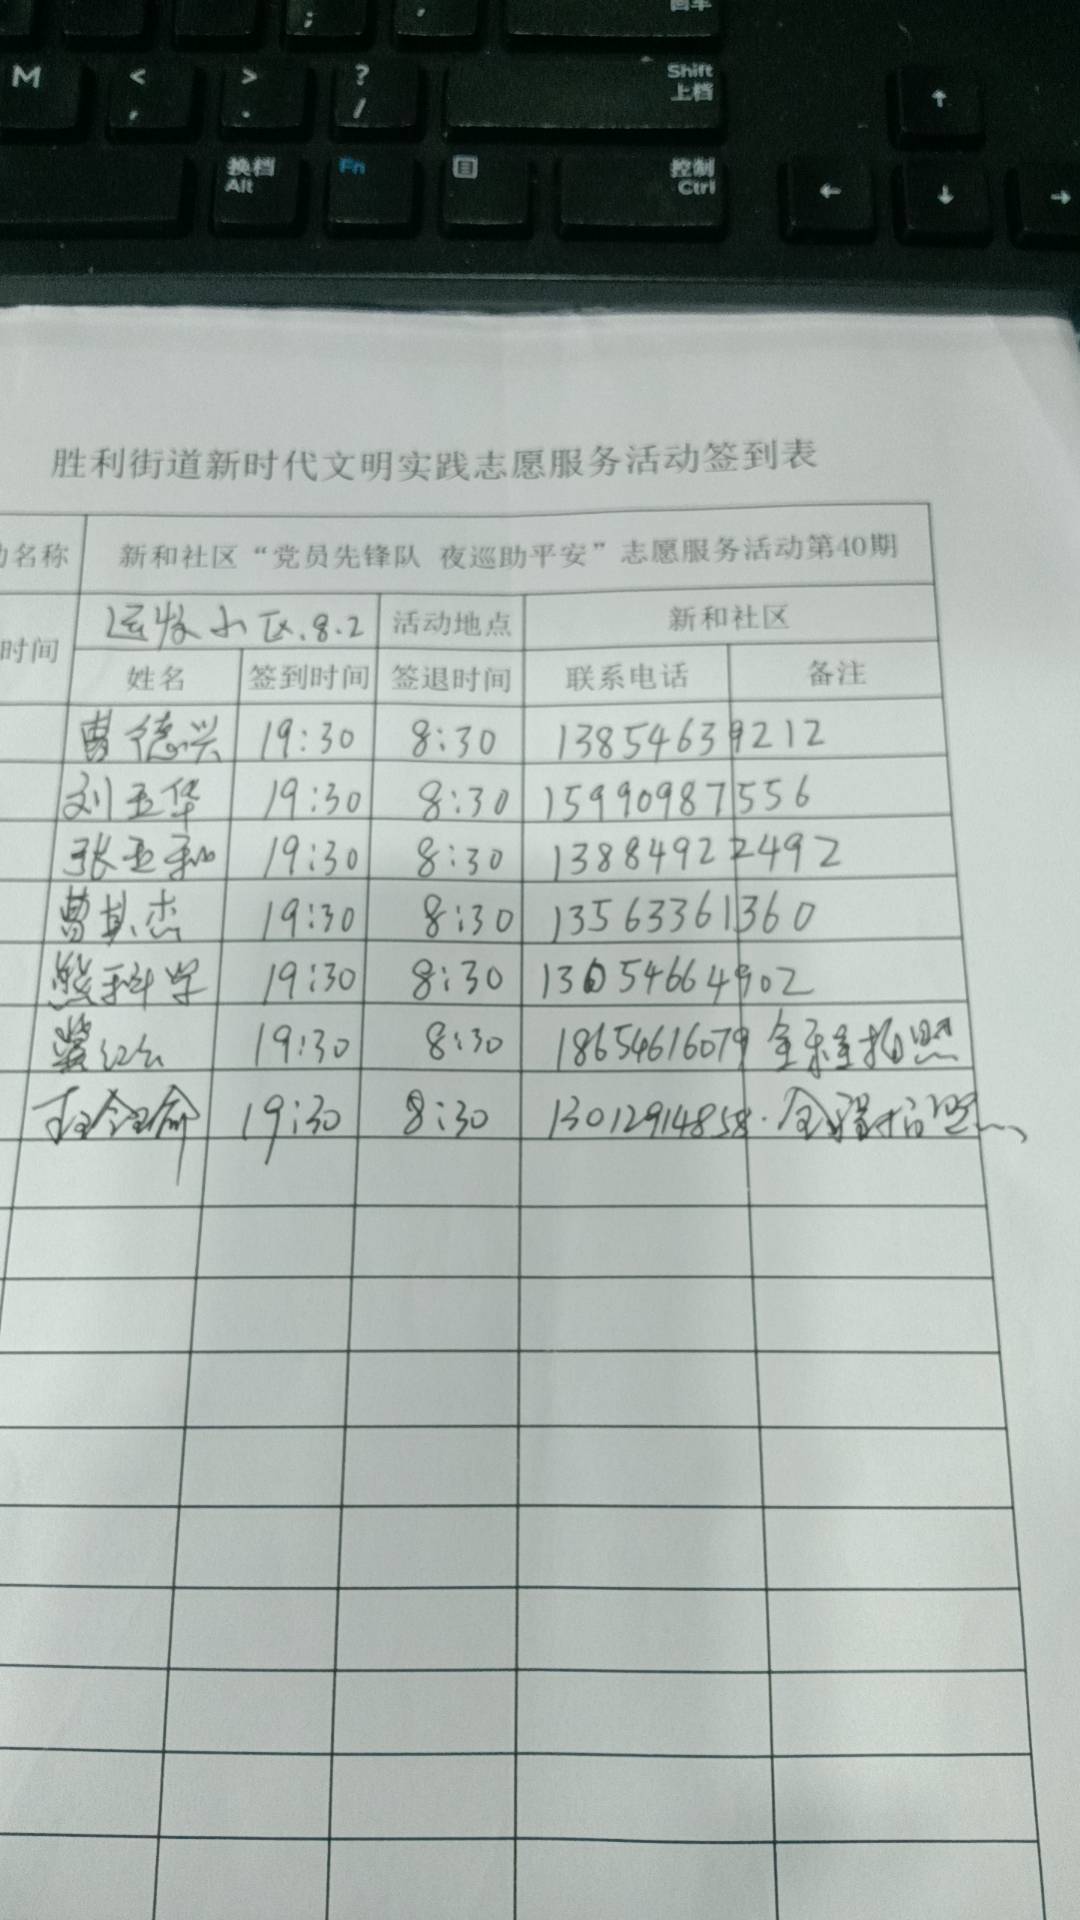 ; , 回车
M < , > . ? / Shift 上档 ↑
换档 Alt Fn 控制 Ctrl ← ↓ →
胜利街道新时代文明实践志愿服务活动签到表
名称 新和社区“党员先锋队 夜巡助平安”志愿服务活动第40期
时间 小区.8.2 活动地点 新和社区
姓名 签到时间 签退时间 联系电话 备注
曹德兴 19:30 8:30 13854639212
刘玉华 19:30 8:30 15990987556
张亚和 19:30 8:30 13884922492
曹其杰 19:30 8:30 13563361360
熊科学 19:30 8:30 13054664902
19:30 8:30 18654616079 全程拍照
19:30 8:30 13012914858. 全程拍照